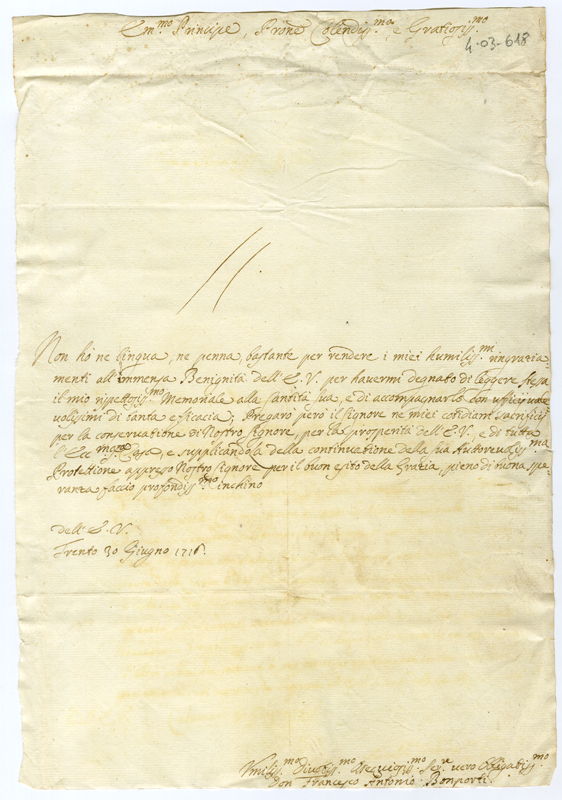 Em.mo Principe, Prone Colendiss.mo e Gratiosiss.mo
4-03-618
Non ho ne lingua, ne penna, bastante per rendere i miei humiliss.mi ringratia-
menti all'immensa Benignità dell'E. V. per havermi degnato di leggere stesa
il mio rispettosiss.mo Memoriale alla Santità sua, e di accompagnarlo con ufficij
volissimi di tanta efficacia; Pregarò però il Signore ne miei cotidiani sacrificij
per la conservatione di Nostro Signore, per la prosperità dell'E. V. e di tutta
l'Ecc.ma Casa, e supplicandola della continuatione della sua Autorevoliss.ma
Protettione appresso Nostro Signore per il buon esito della Gratia, pieno di buona spe-
ranza faccio profondiss.mo inchino
dell'E. V.
Trento 30 Giugno 1716.
Umiliss.mo Divotiss.mo Ossequiosiss.mo Ser.re vero Obligatiss.mo
Don Francesco Antonio Bonporti.